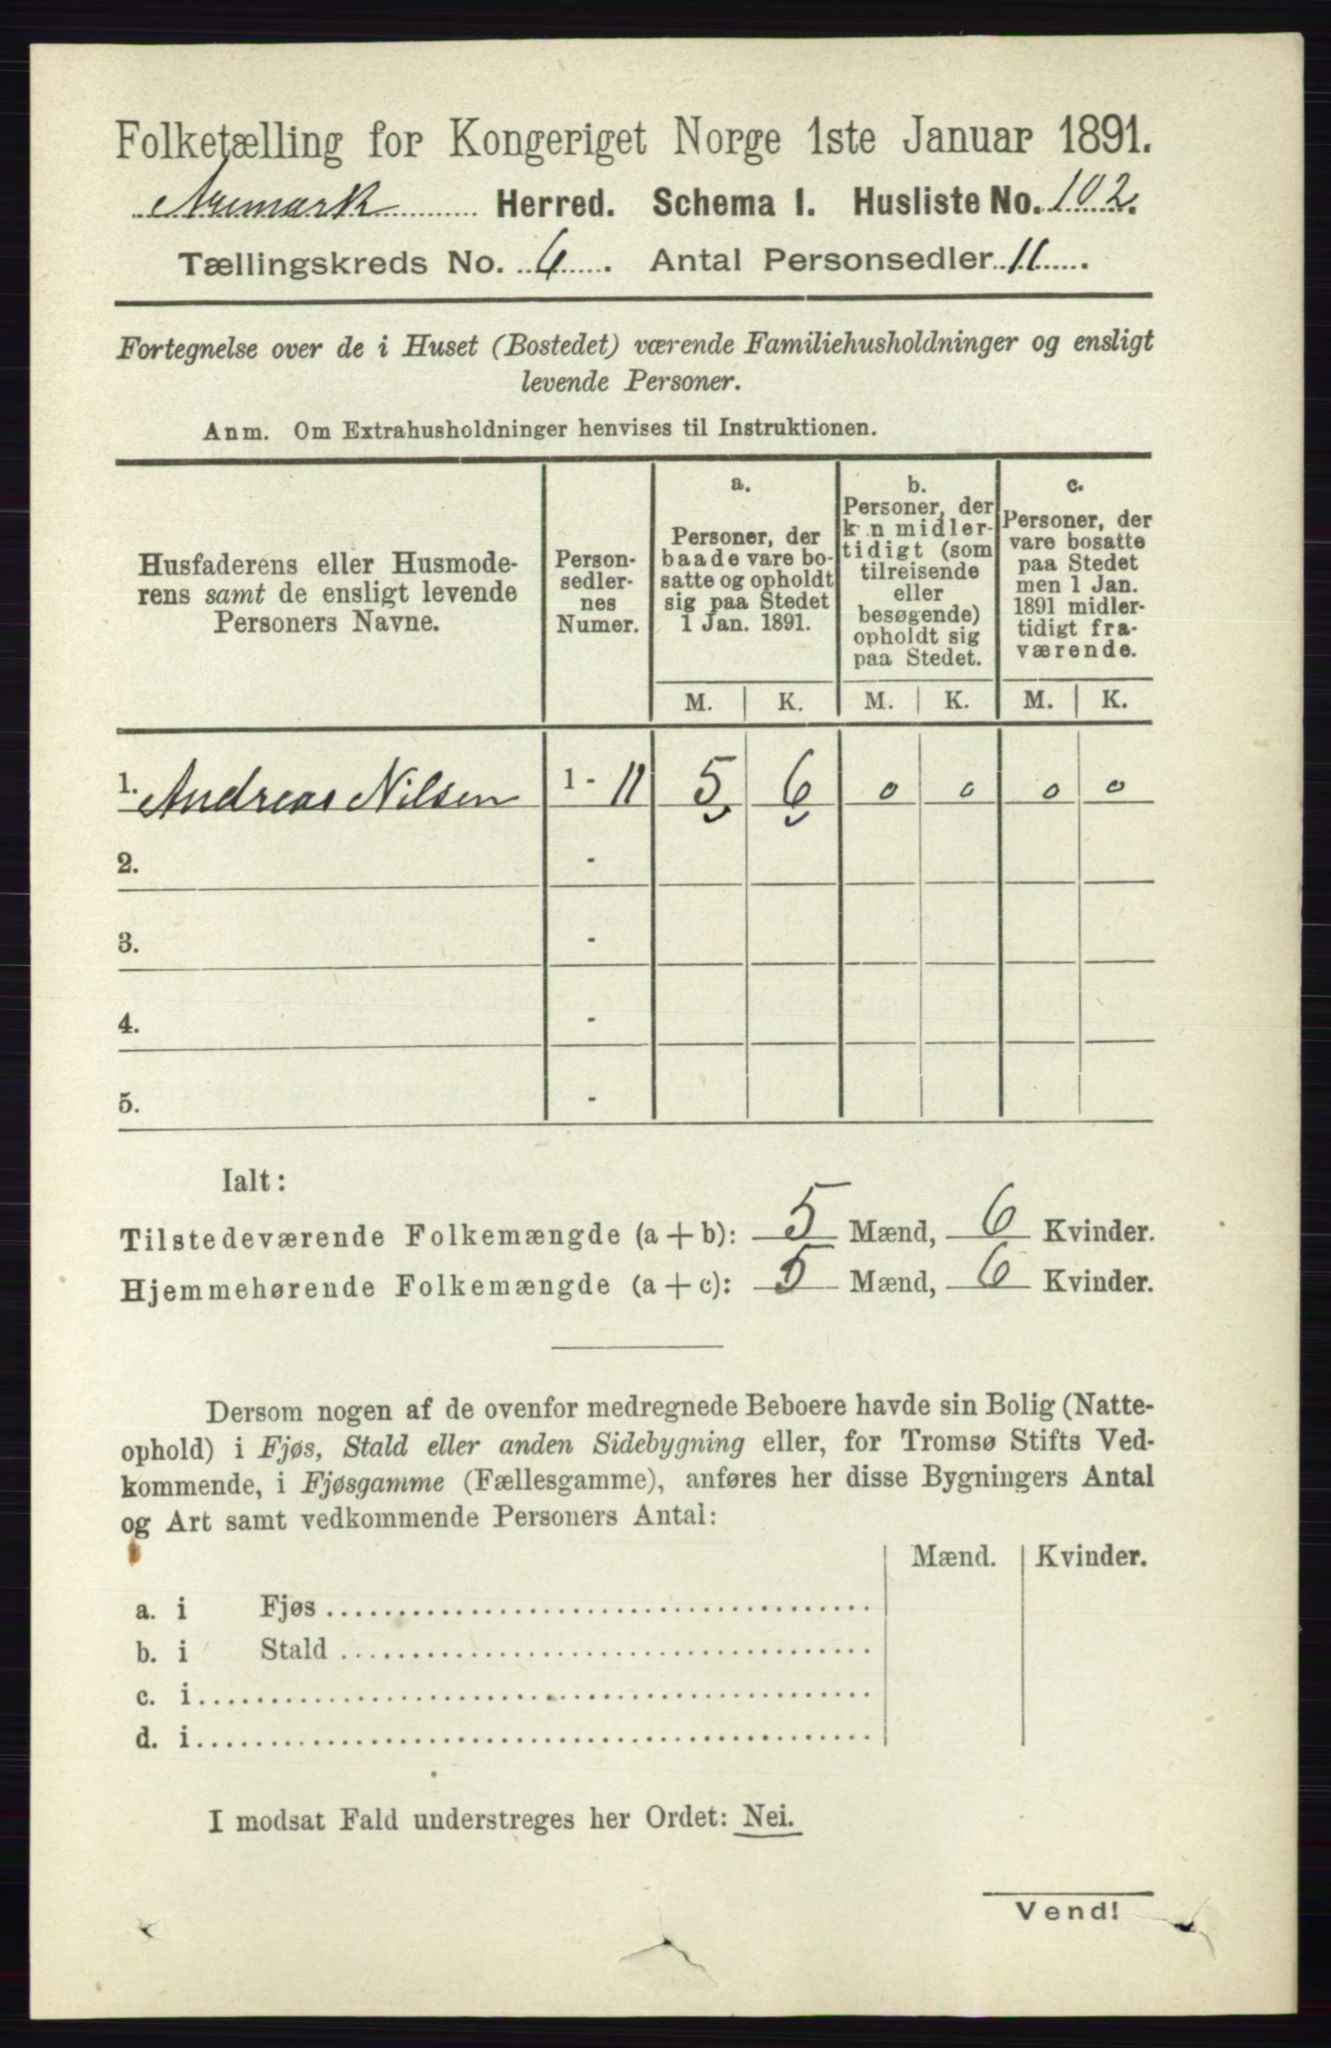 Folketælling for Kongeriget Norge 1ste Januar 1891.
Aremark Herred. Schema I. Husliste No. 102.
Tællingskreds No. 6. Antal Personsedler 11.
Fortegnelse over de i Huset (Bostedet) værende Familiehusholdninger og ensligt
levende Personer.
Anm. Om Extrahusholdninger henvises til Instruktionen.
Husfaderens eller Husmode-
rens samt de ensligt levende
Personers Navne.
Person-
sedler-
nes
Numer.
a.
Personer, der
baade vare bo-
satte og opholdt
sig paa Stedet
1 Jan. 1891.
b.
Personer, der
k n midler-
tidigt (som
tilreisende
eller
besøgende)
opholdt sig
paa Stedet.
c.
Personer, der
vare bosatte
paa Stedet
men 1 Jan.
1891 midler-
tidigt fra-
værende.
M. K. M. K. M. K.
1. Andreas Nilsen 1 - 11 5 6 0 0 0 0
2. -
3. -
4. -
5. -
Ialt:
Tilstedeværende Folkemængde (a + b): 5 Mænd, 6 Kvinder.
Hjemmehørende Folkemængde (a + c): 5 Mænd, 6 Kvinder.
Dersom nogen af de ovenfor medregnede Beboere havde sin Bolig (Natte-
ophold) i Fjøs, Stald eller anden Sidebygning eller, for Tromsø Stifts Ved-
kommende, i Fjøsgamme (Fællesgamme), anføres her disse Bygningers Antal
og Art samt vedkommende Personers Antal:
Mænd. Kvinder.
a. i Fjøs
b. i Stald
c. i
d. i
I modsat Fald understreges her Ordet: Nei.
Vend!